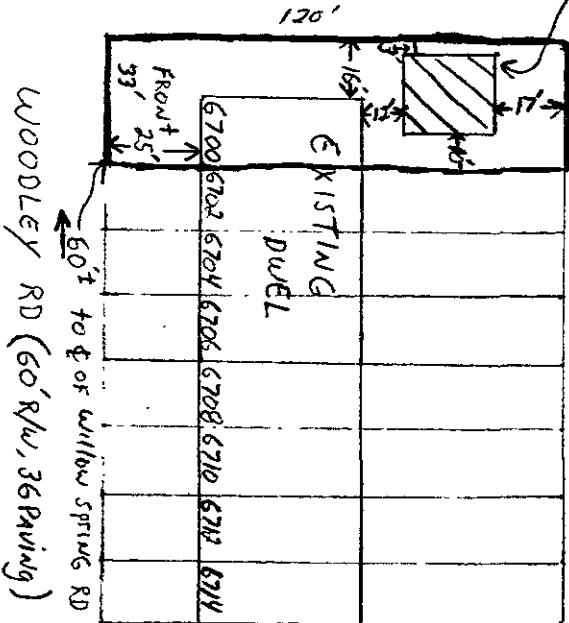 120'
3'
16'
17'
12'
FRONT
33'
25'
EXISTING
DWEL
6700 6702 6704 6706 6708 6710 6712 6714
60'± to ℄ OF Willow SPTING RD
WOODLEY RD (60' R/W, 36 PAVING)